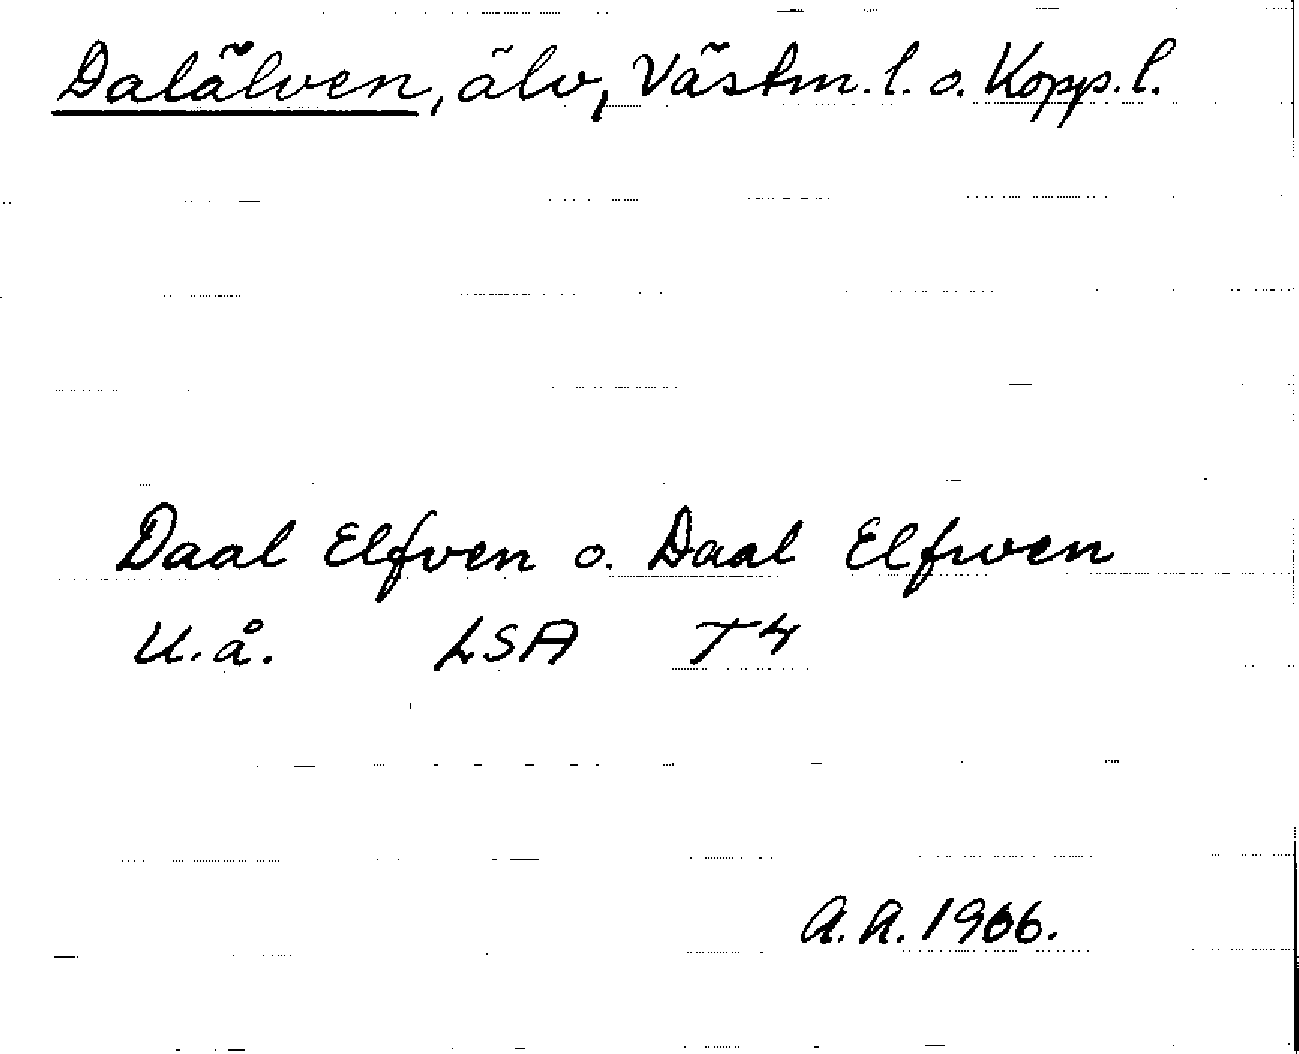 Dalälven, älv, Västm. l. o. Kopp. l.
Daal Elfven o. Daal Elfwen
U.å. LSA T4
A.A. 1966.